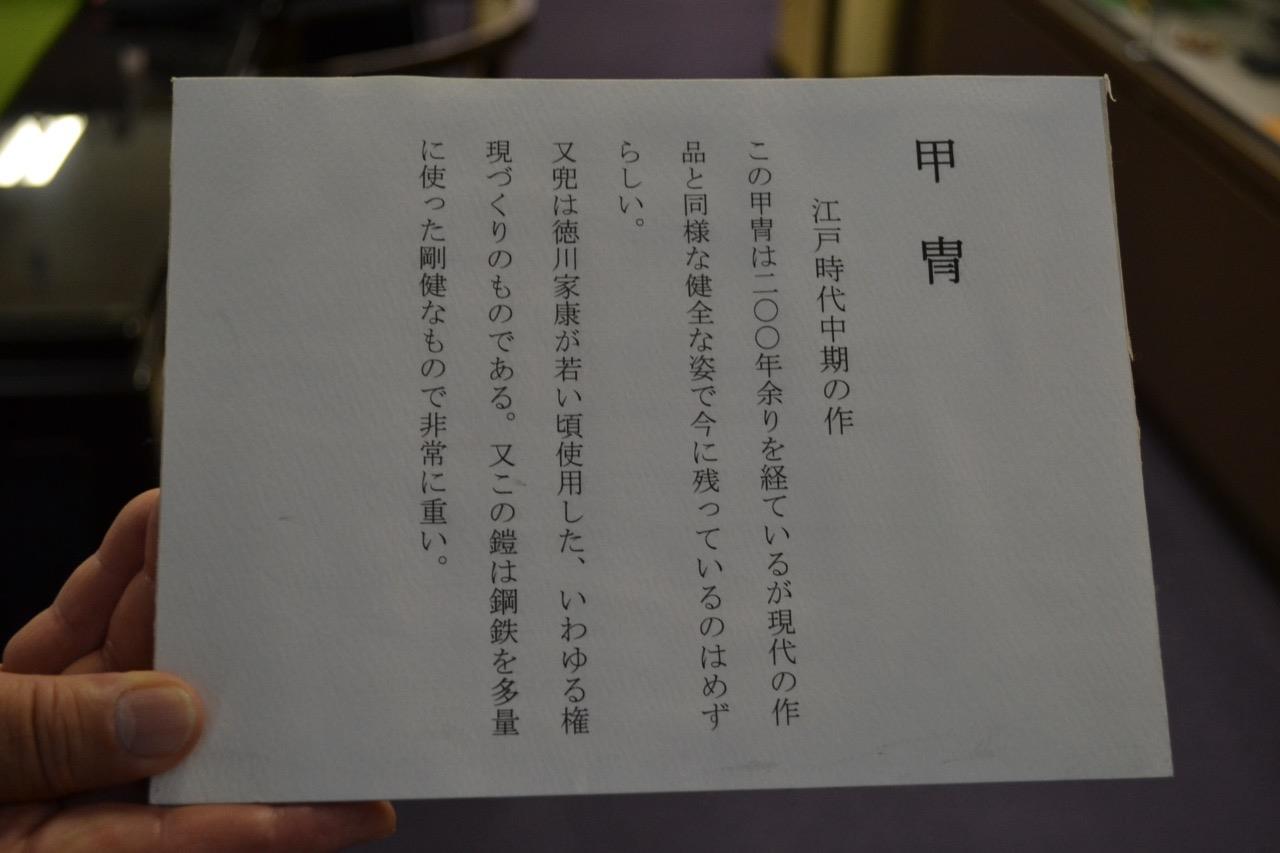 甲冑
江戸時代中期の作
この甲冑は二〇〇年余りを経ているが現代の作
品と同様な健全な姿で今に残っているのはめず
らしい。
又兜は徳川家康が若い頃使用した、いわゆる権
現づくりのものである。又この鎧は鋼鉄を多量
に使った剛健なもので非常に重い。